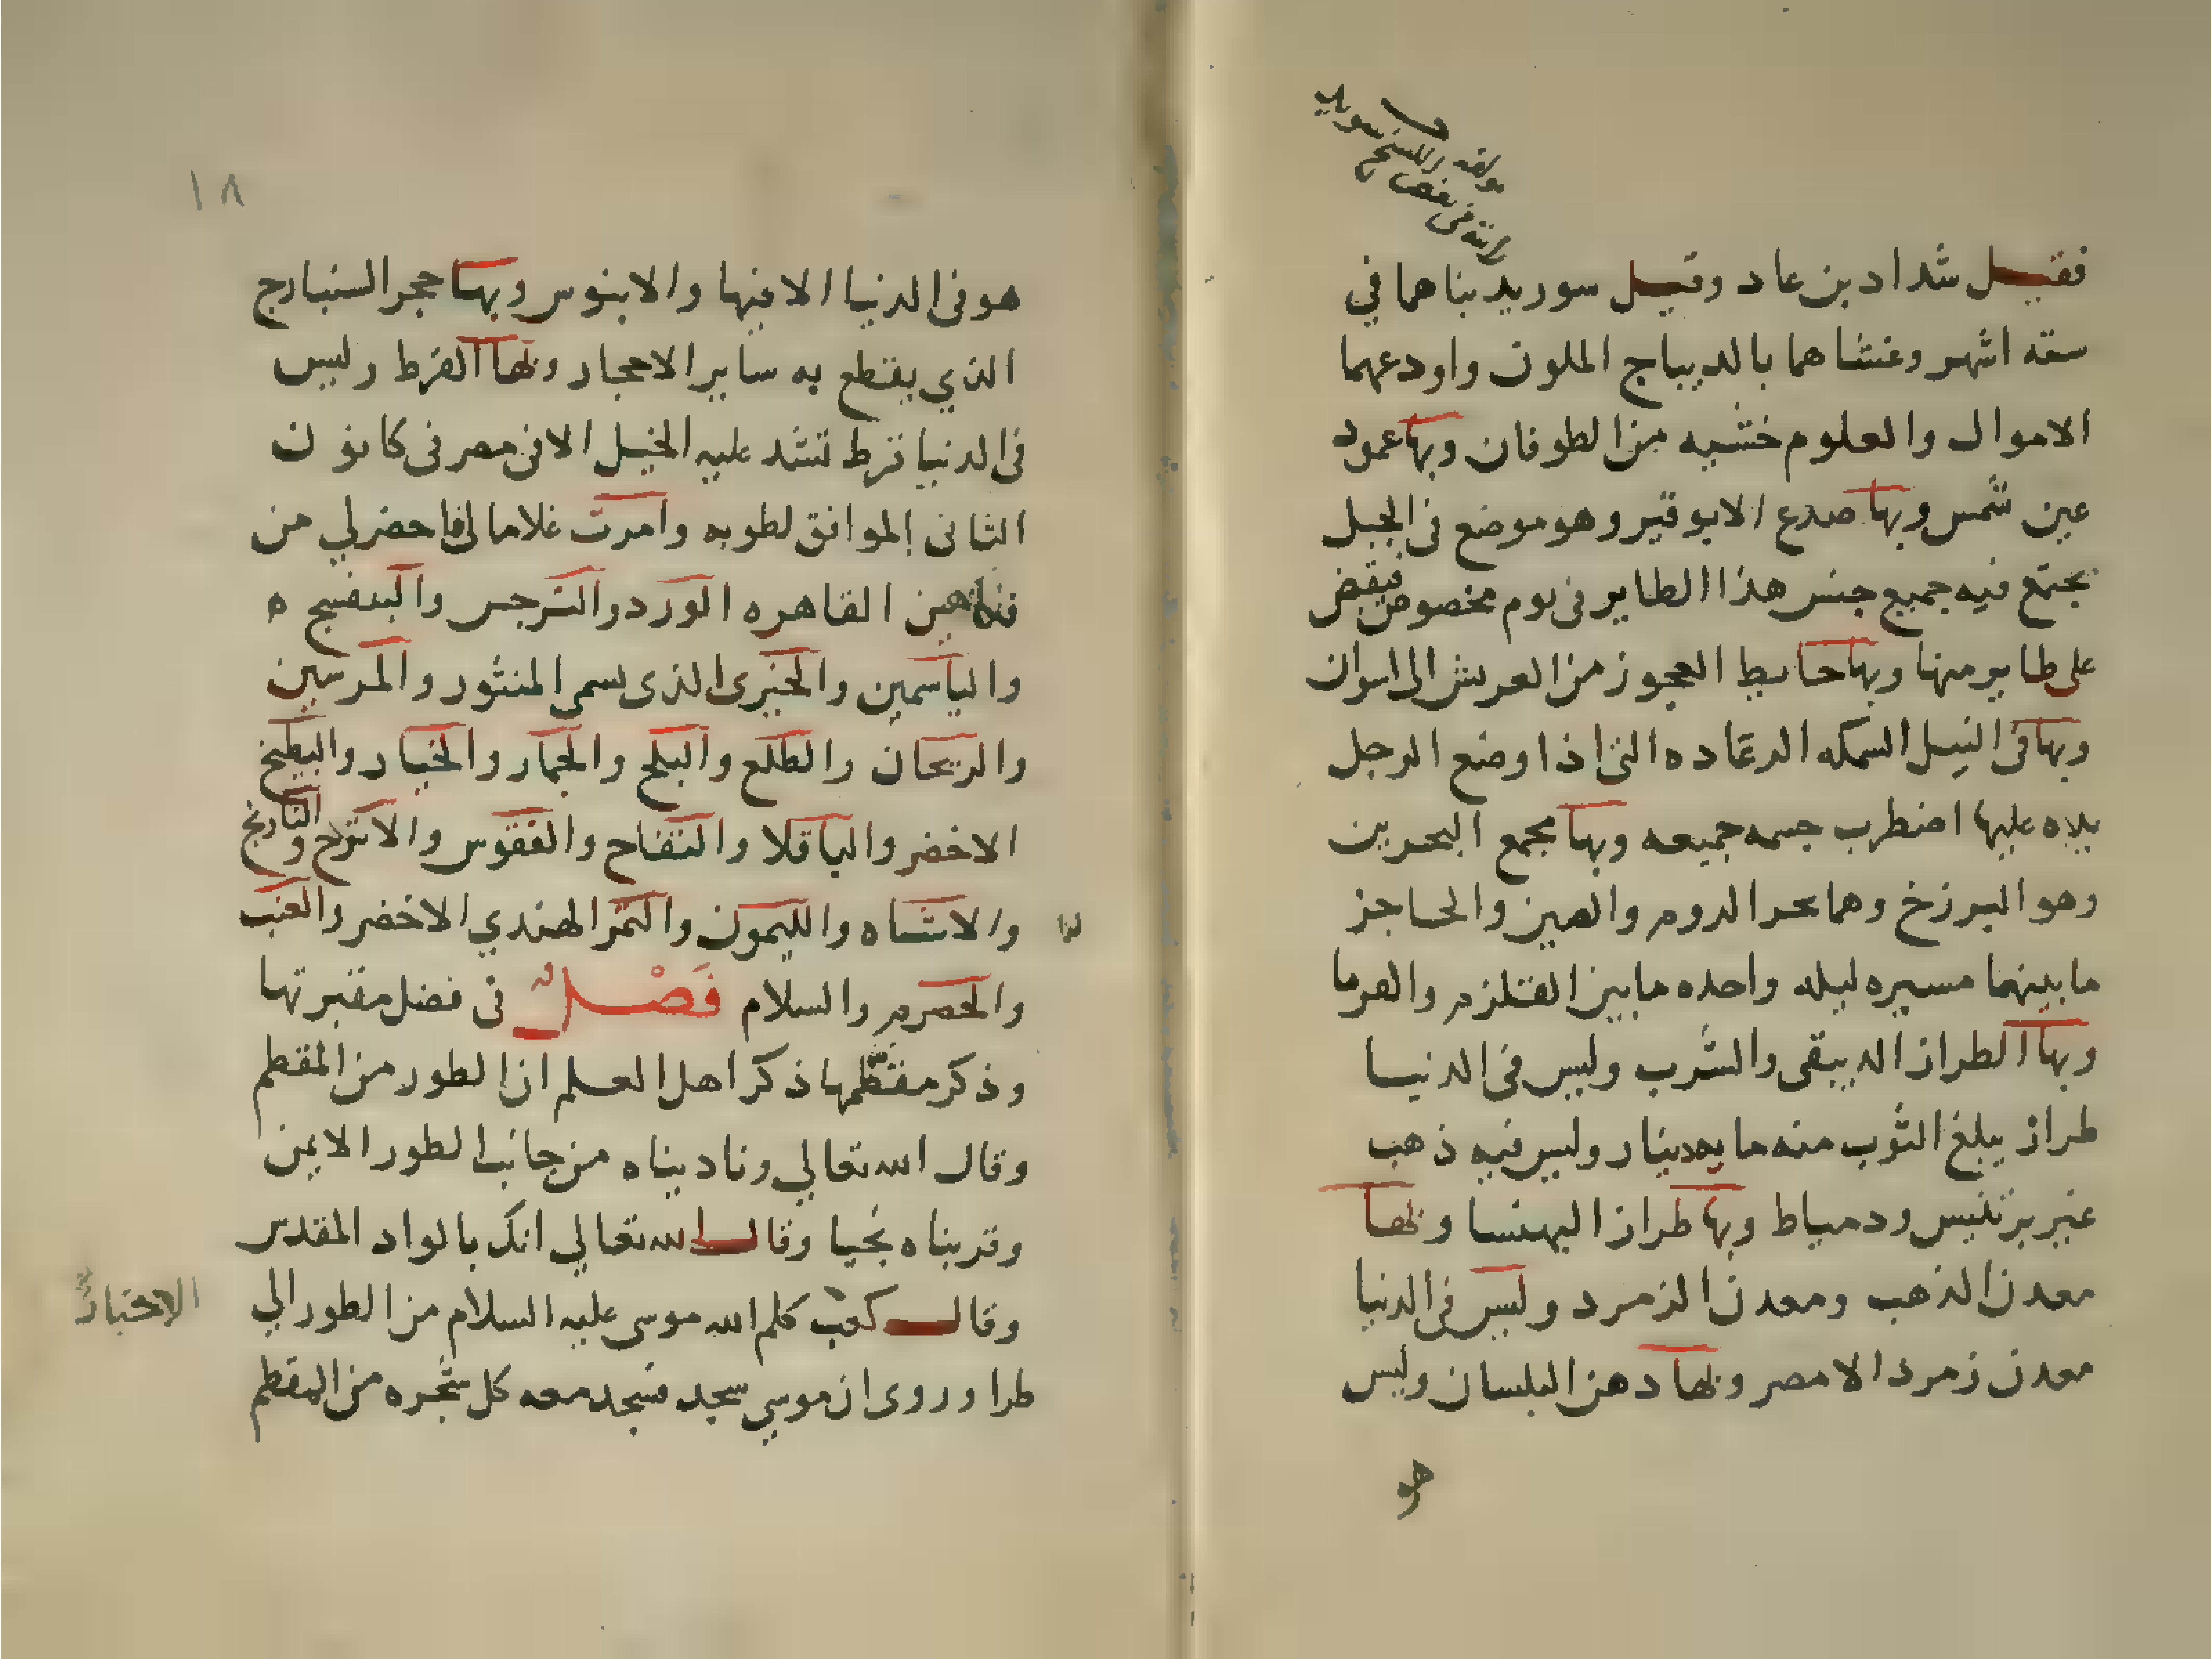 فقيل شداد بن عاد وقيل سوريد بناهما في
سته اشهر وغشاهما بالديباج الملون واودعهما
الاموال والعلوم خشيه من الطوفان وبها عمود
عين شمس وبها صدع الابوقير وهو موضع في الجبل
يجتمع فيه جميع جنس هذا الطاير في يوم مخصوص فيقبض
على طاير منها وبها حايط العجوز من العريش الى اسوان
وبها في النيل السمكه الرعاده التي اذا وضع الرجل
يده عليها اضطرب جسمه جميعه وبها مجمع البحرين
وهو البرزخ وهما بحر الروم والصين والحاجز
ما بينهما مسيره ليله واحده ما بين القلزم والفرما
وبها الطراز الدبيقي والشرب وليس في الدنيا
طراز يبلغ الثوب منه مايه دينار وليس فيه ذهب
غير بز تنيس ودمياط وبها طراز البهنسا ولها
معدن الذهب ومعدن الزمرد وليس في الدنيا
معدن زمرد الا مصر ولها دهن البلسان وليس
هو
١٨
هو في الدنيا الا فيها والابنوس وبها حجر السنبادج
الذي يقطع به ساير الاحجار ولها القرط وليس
في الدنيا قرط تشد عليه الخيل الا في مصر في كانون
الثاني الموافق لطوبه وامرت غلاما لي فاحضر لي من
القاهره الورد والنرجس والبنفسج ه
والياسمين والخيري الذي يسمى المنثور والمرسين
والريحان والطلع والبلح والجمار والخيار والبطيخ
الاخضر والباقلا والتفاح والفقوس والاترج والنارنج
والاشياه والليمون والتمر الهندي الاخضر والعنب
والحصرم والسلام فصل في فضل مقبرتها
وذكر مقطمها ذكر اهل العلم ان الطور من المقطم
وقال الله تعالي وناديناه من جانب الطور الايمن
وقربناه نجيا وقال الله تعالي انك بالواد المقدس
وقال كعب كلم الله موسى عليه السلام من الطور الي
الاحبار
طرا وروى ان موسي سجد فسجد معه كل شجره من المقطم